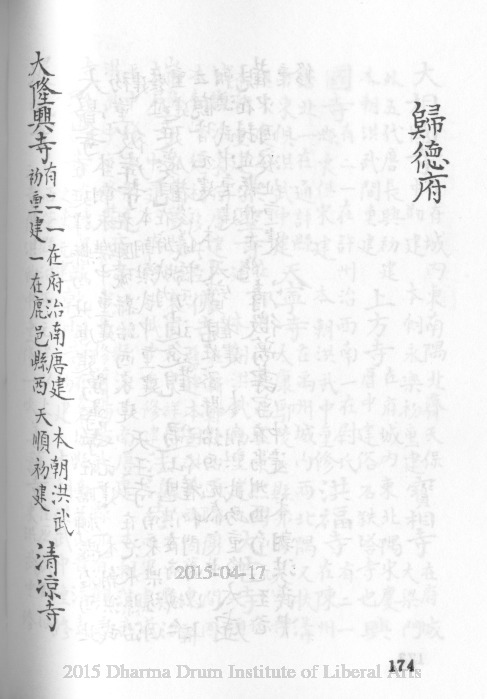 歸德府
大隆興寺有二一在府治南唐建本朝洪武
初重建一在鹿邑縣西天順初建清凉寺
2015-04-17
174
2015 Dharma Drum Institute of Liberal Arts